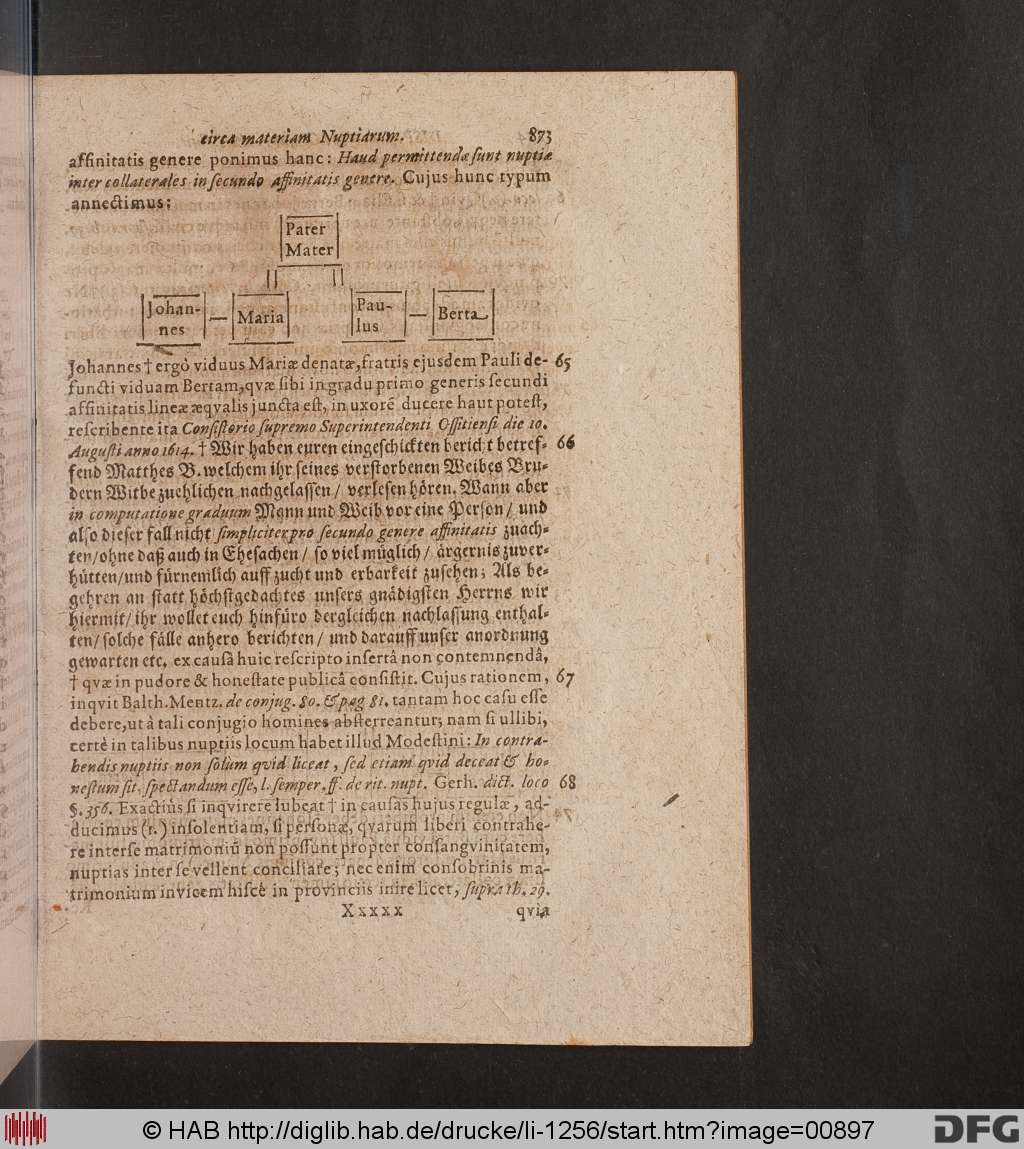 circa materiam Nuptiarum. 873
affinitatis genere ponimus hanc: Haud permittendæ sunt nuptiæ
inter collaterales in secundo affinitatis genere. Cujus hunc typum
annectimus:
Pater
Mater
Johan-
nes — Maria Pau-
lus — Berta
Johannes † ergò viduus Mariæ denatæ, fratris ejusdem Pauli de- 65
functi viduam Bertam, qvæ sibi in gradu primo generis secundi
affinitatis lineæ æqvalis juncta est, in uxorē ducere haut potest,
rescribente ita Consistorio supremo Superintendenti Ossitiensi die 10.
Augusti anno 1614. † Wir haben euren eingeschickten bericht betref- 66
fend Matthes B. welchem ihr seines verstorbenen Weibes Bru-
dern Witbe zuehlichen nachgelassen / verlesen hören. Wann aber
in computatione graduum Mann und Weib vor eine Person / und
also dieser fall nicht simpliciter pro secundo genere affinitatis zuach-
ten / ohne daß auch in Ehesachen / so viel müglich / ärgernis zuver-
hütten / und fürnemlich auff zucht und erbarkeit zusehen; Als be-
gehren an statt höchstgedachtes unsers gnädigsten Herrns wir
hiermit / ihr wollet euch hinfüro dergleichen nachlassung enthal-
ten / solche fälle anhero berichten / und darauff unser anordnung
gewarten etc. ex causâ huic rescripto insertâ non contemnendâ,
† qvæ in pudore & honestate publicâ consistit. Cujus rationem, 67
inqvit Balth. Mentz. de conjug. 80. & pag 81. tantam hoc casu esse
debere, ut à tali conjugio homines absterreantur; nam si ullibi,
certè in talibus nuptiis locum habet illud Modestini: In contra-
hendis nuptiis non solùm qvid liceat, sed etiam qvid deceat & ho-
nestum sit, spectandum esse, l. semper. ff. de rit. nupt. Gerh. dict. loco 68
§. 356. Exactiùs si inqvirere lubeat † in causas hujus regulæ, ad-
ducimus (1.) insolentiam, si personæ, qvarum liberi contrahe-
re interse matrimoniū non possunt propter consangvinitatem,
nuptias inter se vellent conciliare; nec enim consobrinis ma-
trimonium invicem hisce in provinciis inire licet, supra th. 29.
Xxxxx qvia
© HAB http://diglib.hab.de/drucke/li-1256/start.htm?image=00897
DFG